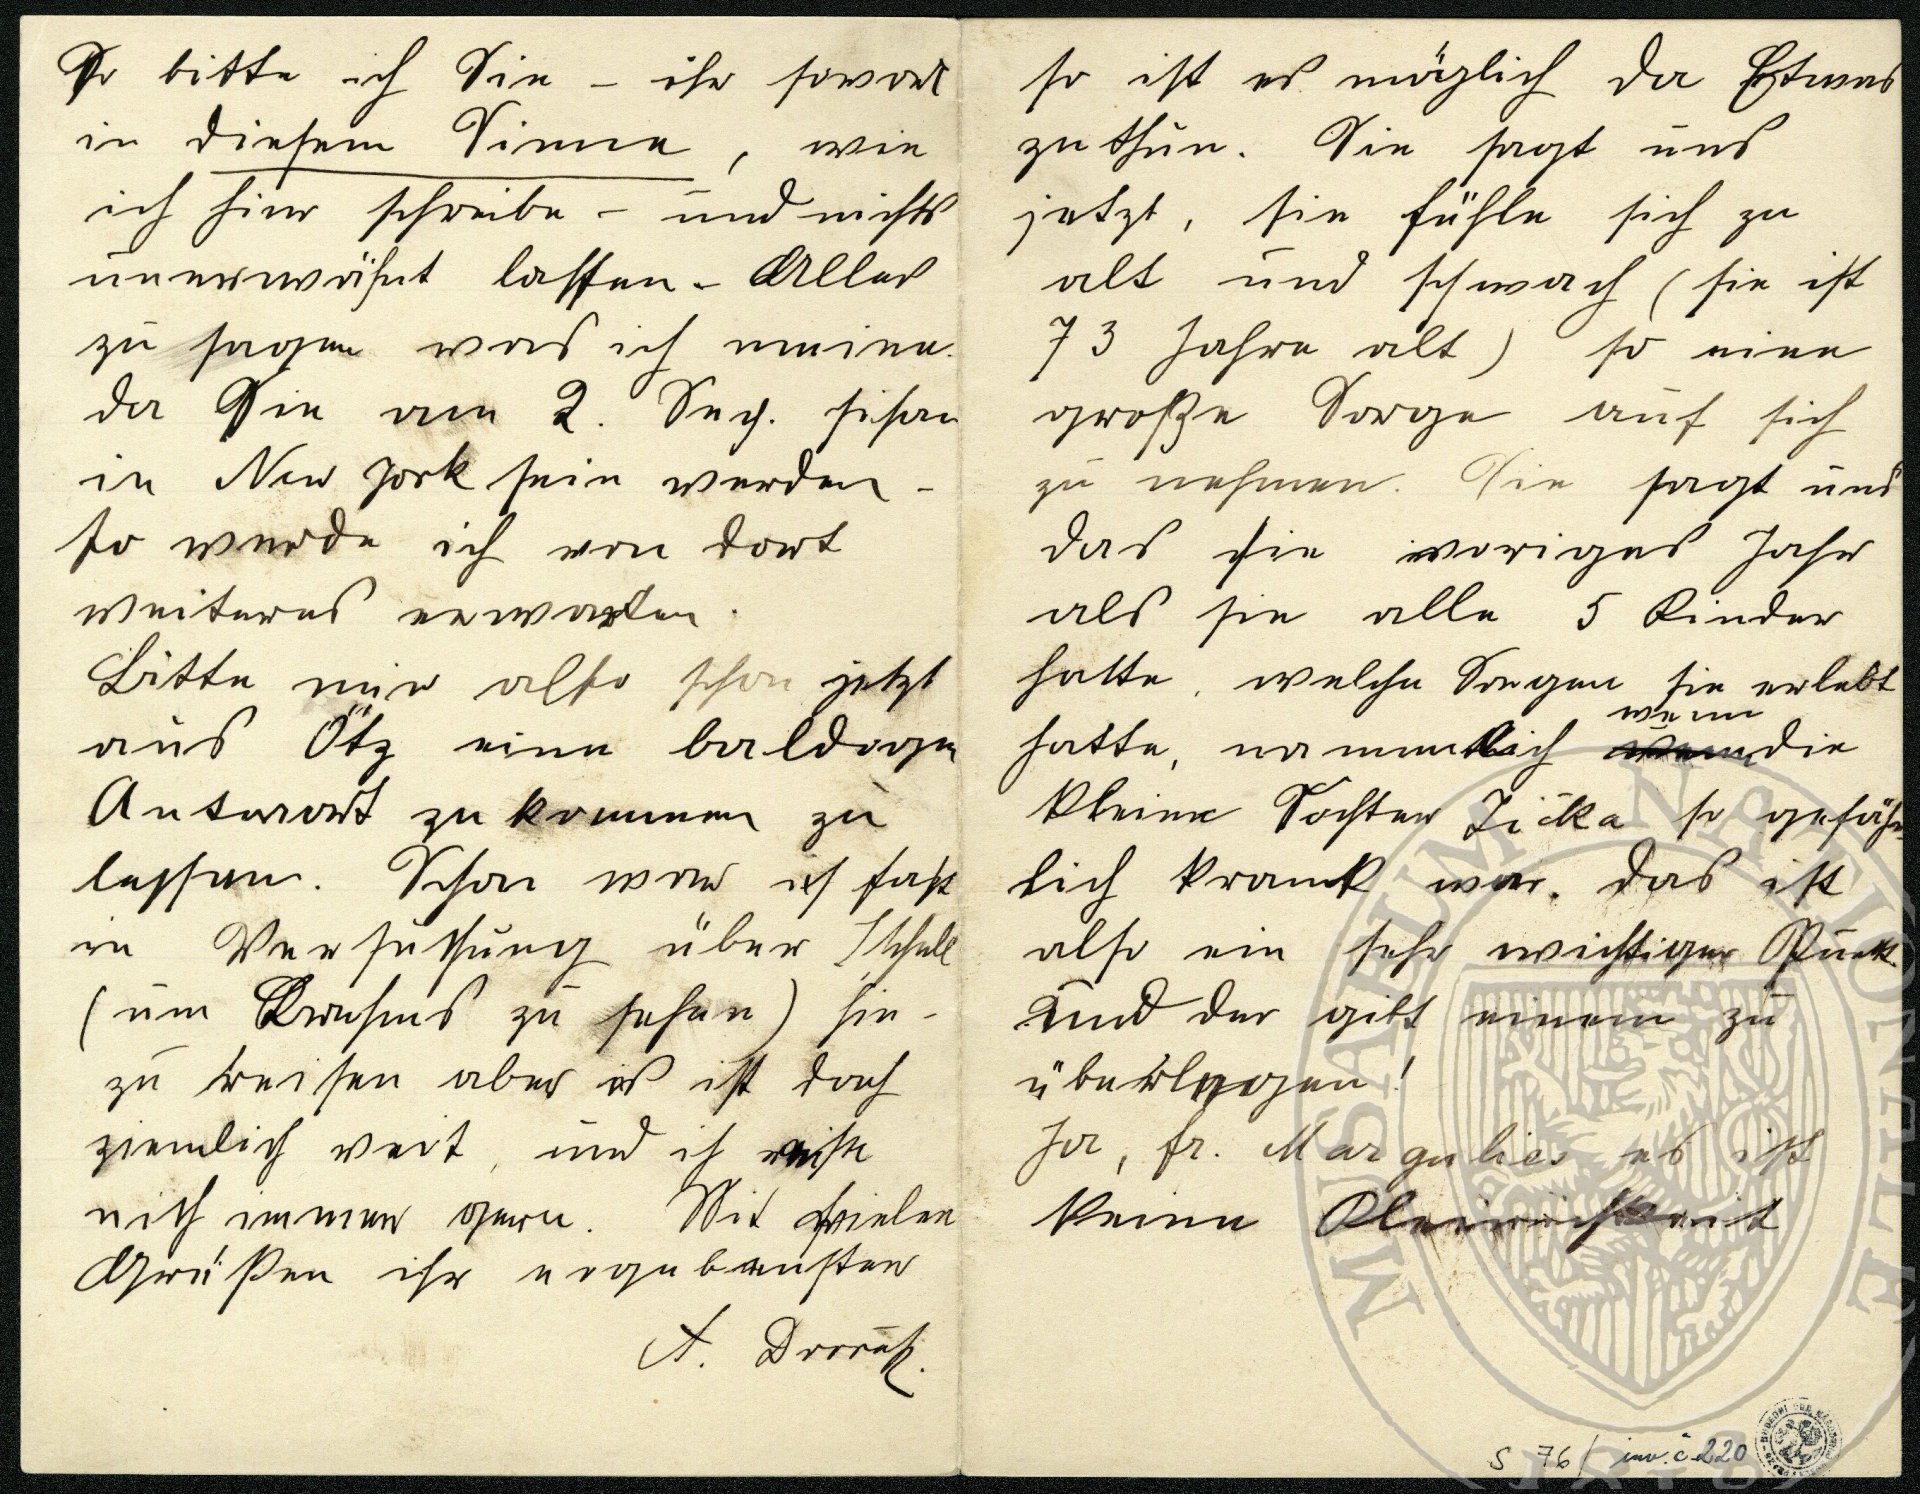 So bitte ich Sie – ihr sowort
in diesem Sinne, wie
ich hier schreibe – und nichts
unerwähnt lassen – Alles
zu sagen was ich meine.
da Sie am 2. Sep. schon
in New York sein werden –
so werde ich von dort
weiteres erwarten.
Bitte mir also schon jetzt
aus Ötz eine baldige
Antwort zu kommen zu
lassen. Schon war ich fast
in Versuchung über Ischl
(um Brahms zu sehen) hin-
zu reisen aber es ist doch
ziemlich weit, und ich reise
nich immer gern. Mit vielen
Grüßen ihr ergebenster
A. Dvořák.
so ist es möglich da Etwas
zu thun. Sie sagt uns
jetzt, sie fühle sich zu
alt und schwach (sie ist
73 Jahre alt) so eine
große Sorge auf sich
zu nehmen. Sie sagt uns
das sie voriges Jahr
als sie alle 5 Kinder
hatte, welche Sorgen sie erlebt
wenn
hatte, namentlich die
kleine Tochter Zička so gefähr
lich krank war. das ist
also ein sehr wichtiger Punk
und der gibt einem zu
überlegen!
Ja, fr. Margulies es ist
keine Kleinichkeit
S 76/ inv. č 220
MUSAEUM NATIONALE